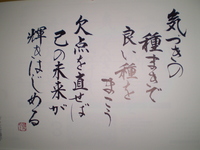 気づきの
種まきぞ
良い種を
まこう
欠点を直せば
己の未来が
輝きはじめる